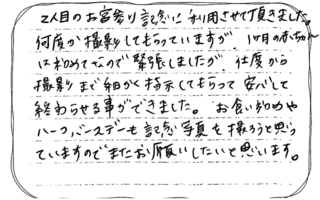 2人目のお宮参り記念に利用させて頂きました。
何度か撮影してもらっていますが、1ヶ月の赤ちゃん
は初めてなので緊張しましたが 仕度から
撮影まで細かく指示してもらって安心して
終わらせる事ができました。お食い初めや
ハーフバースデーも記念写真を撮ろうと思っ
ていますのでまたお願いしたいと思います。